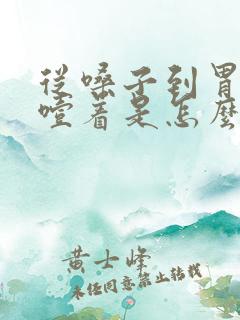 從嗓子到胃
噎着是怎麼
黄士峰
未经同意禁止转载